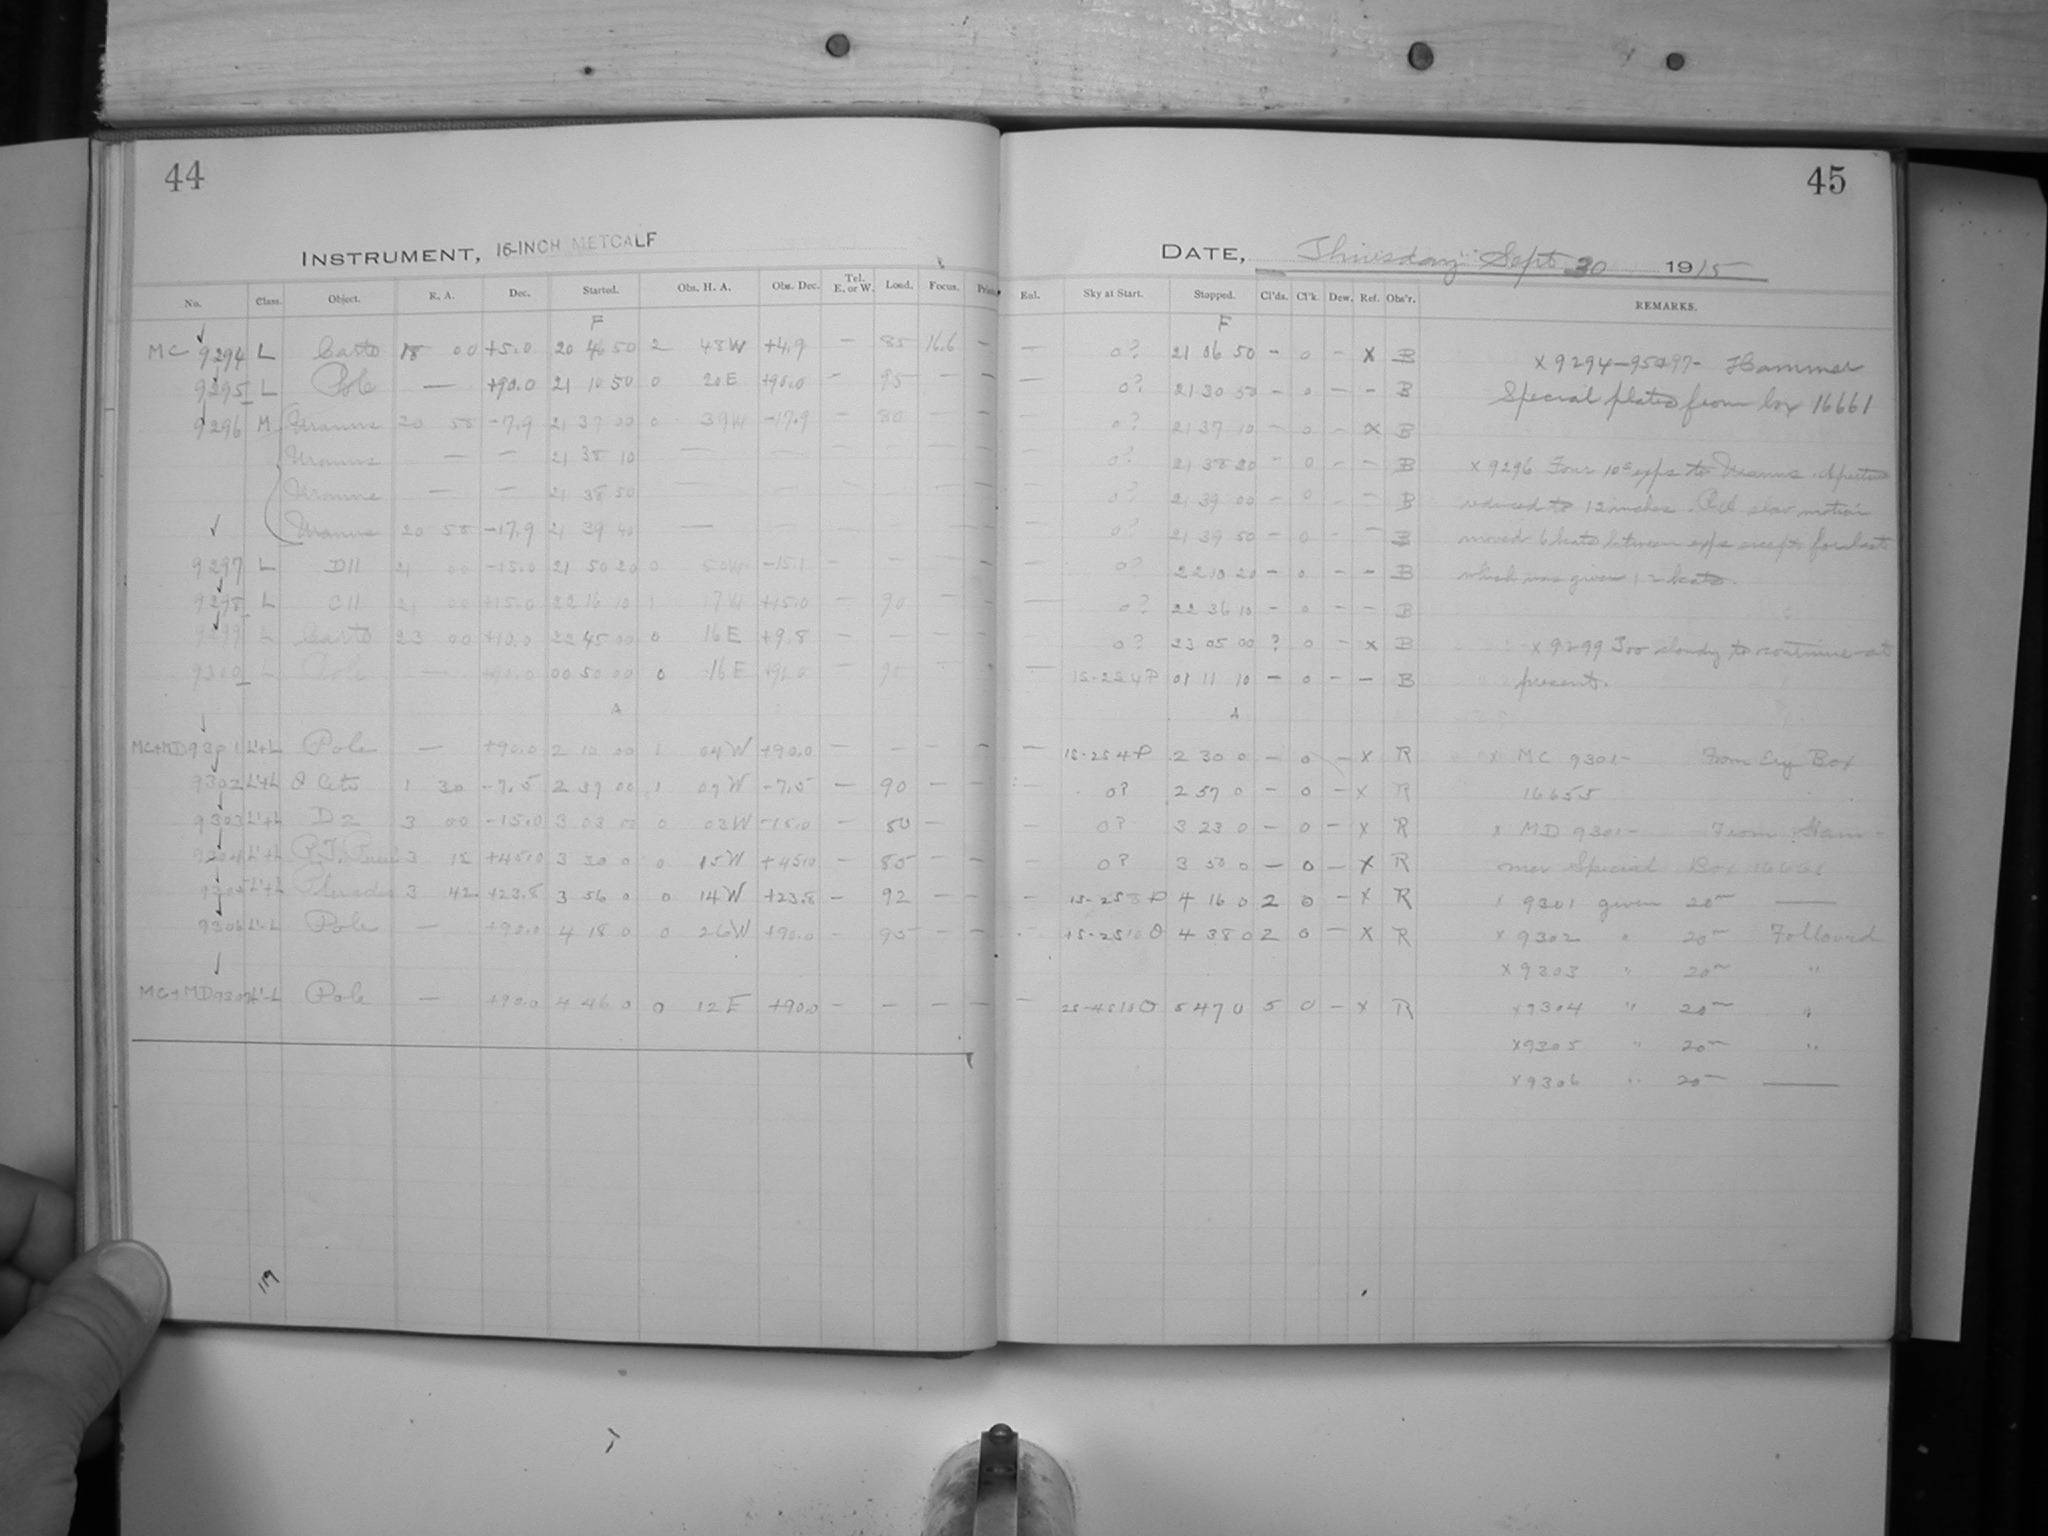 44
45
INSTRUMENT, 16-INCH METCALF
DATE, Thursday Sept 30 1915
No. Class. Object. R. A. Dec. Started. Obs. H. A. Obs. Dec. Tel. E. or W. Load. Focus. Prism.
Enl. Sky at Start. Stopped. Cl'ds. Cl'k. Dew. Ref. Obs'r. REMARKS.
F
F
MC 9294 L 18 00 +5.0 20 46 50 2 48W +4.9 — 85 16.6 —
— 0? 21 06 50 — 0 — x B
9295 L Pole — +90.0 21 10 50 0 20E +90.0 — 95 — —
— 0? 21 30 50 — 0 — — B
9296 M Uranus 20 58 -7.9 21 37 00 0 39W -17.9 — 80
0? 21 37 10 — 0 — x B
Uranus — — 21 38 10 —
0? 21 38 20 — 0 — — B
Uranus — — 21 38 50
0? 21 39 00 — 0 — — B
Uranus 20 58 -17.9 21 39 40 —
0? 21 39 50 — 0 — — B
9297 L D11 21 00 -15.0 21 50 20 0 50W -15.1 —
— 0? 22 10 20 — 0 — — B
9298 L C11 21 00 +15.0 22 16 10 1 17W +15.0 — 90 —
— 0? 22 36 10 — 0 — — B
9299 L 23 00 +10.0 22 45 00 0 16E +9.8 —
0? 23 05 00 ? 0 — x B
9300 L Pole — +90.0 00 50 00 0 16E +90.0 — 90
— 1S-2S4P 01 11 10 — 0 — — B
A
A
MC+MD 9301 L'+L Pole — +90.0 2 10 00 1 04W +90.0 — —
— 1S-2S4P 2 30 0 — 0 — x R
9302 L'+L θ Ceti 1 30 -7.5 2 37 00 1 07W -7.5 — 90 —
0? 2 57 0 — 0 — x R
9303 L'+L D2 3 00 -15.0 3 03 00 0 03W -15.0 — 80 —
— 0? 3 23 0 — 0 — x R
9304 L'+L 3 12 +45.0 3 30 0 0 15W +45.0 — 85 — —
— 0? 3 50 0 — 0 — x R
9305 L'+L Pleiades 3 42 +23.8 3 56 0 0 14W +23.8 — 92 — —
4 16 0 2 0 — x R
9306 L'-L Pole — +90.0 4 18 0 0 26W +90.0 — 95 — —
4 38 0 2 0 — x R
MC+MD 9307 L'-L Pole — +90.0 4 46 0 0 12E +90.0 — — — —
5 47 0 5 0 — x R
x 9294-95-97- Hammer
Special plates from box 16661
x 9296 Four 10s exps to Uranus. Aperture
reduced to 12 inches. slow motion
moved 6 between exps except for last
which was given 12
x 9299 Too cloudy to continue at
present.
x MC 9301- From Box
16655
x MD 9301- From Ham-
mer Special Box 16661
x 9301 given 20m ——
x 9302 " 20m Followed
x 9303 " 20m "
x 9304 " 20m "
x 9305 " 20m "
x 9306 " 20m ——
119